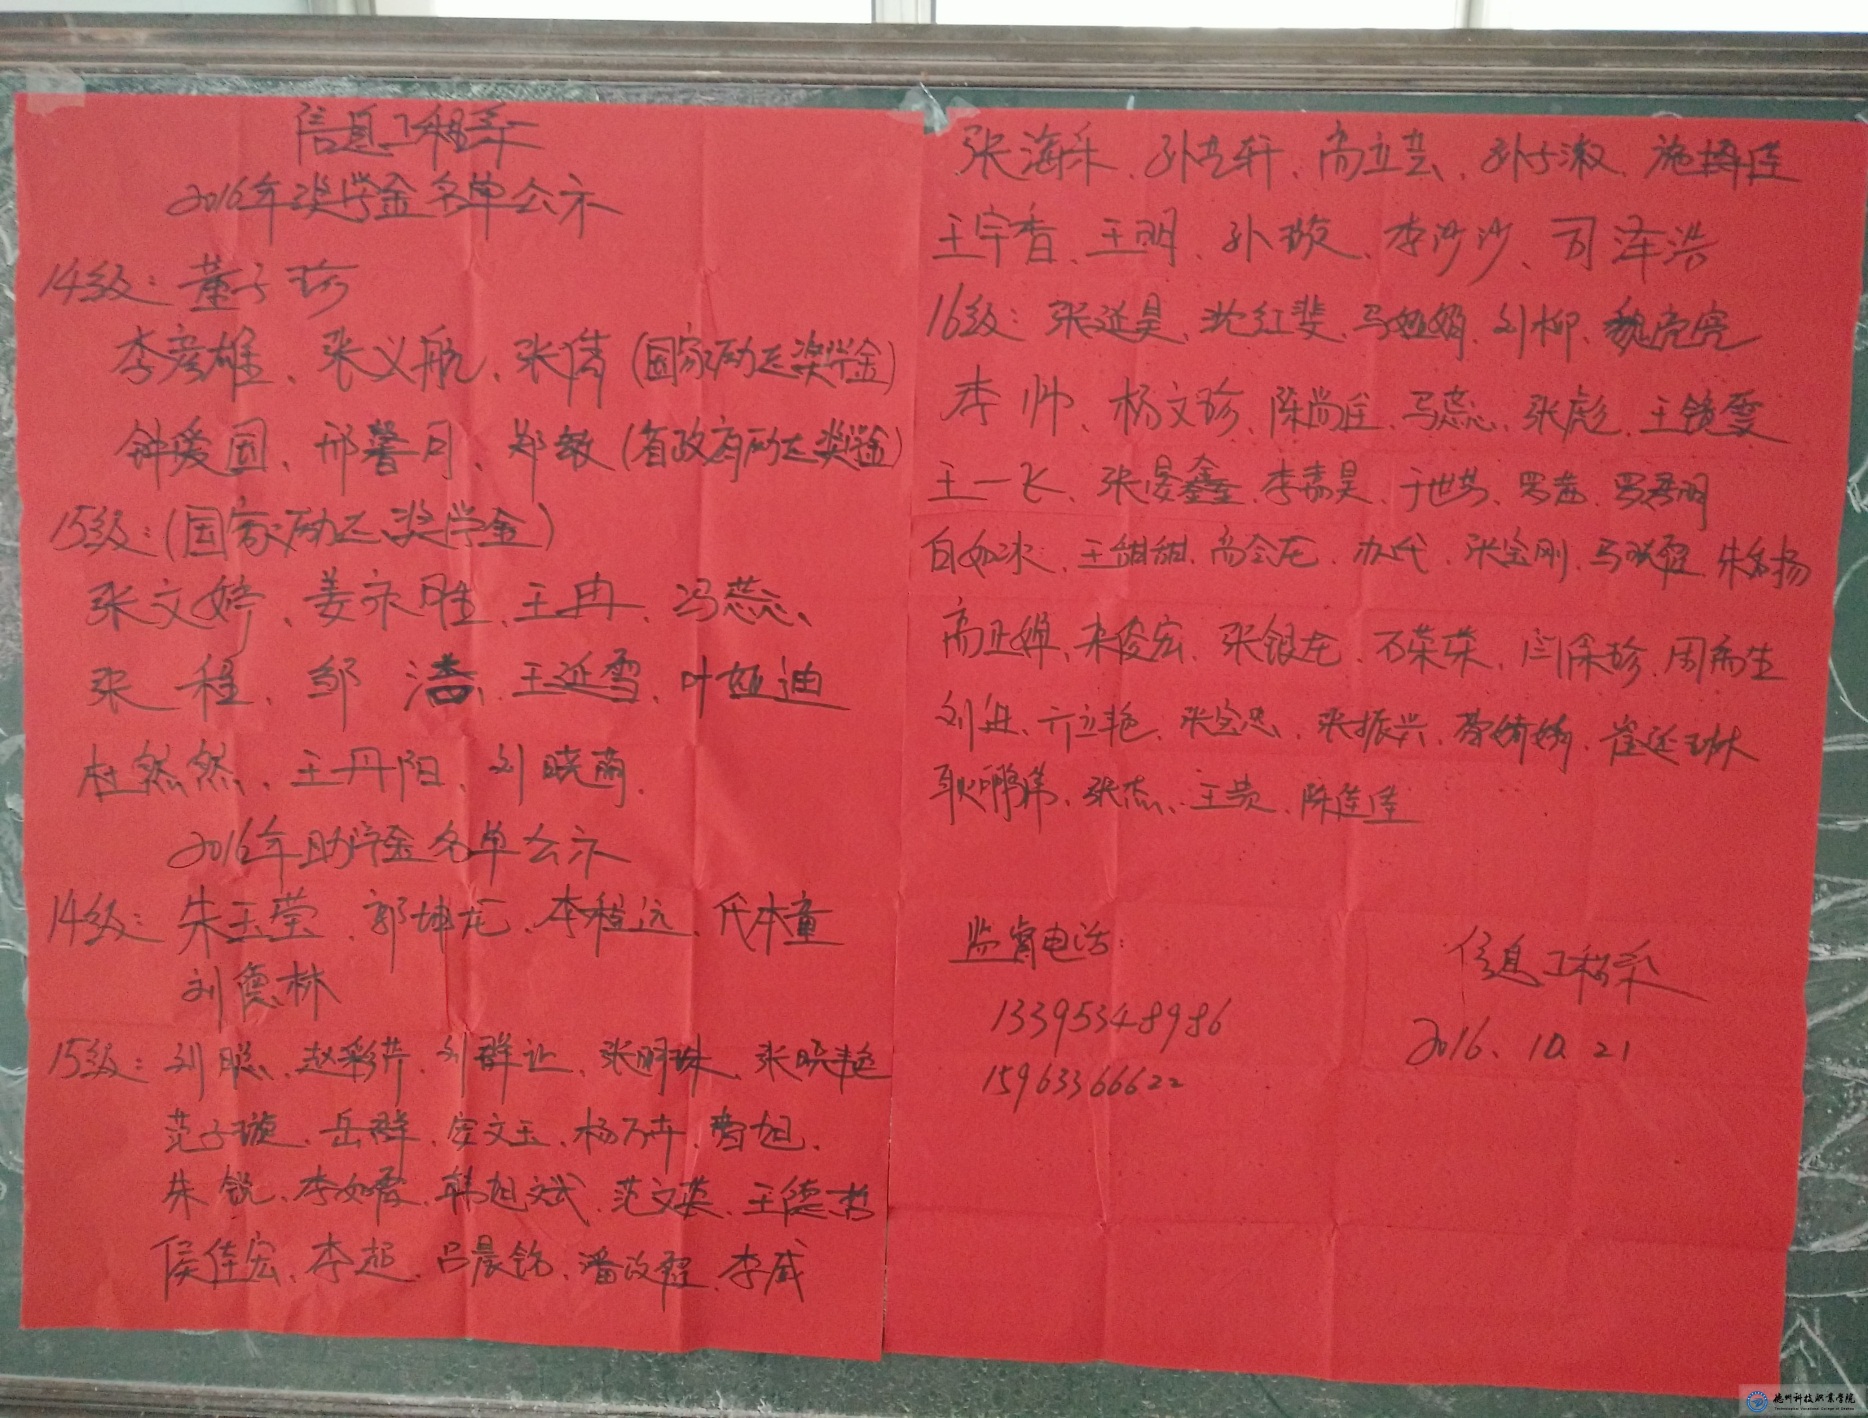 信息工程系
2016年奖学金名单公示
14级：董子珍
李彦雄、张义航、张倩（国家励志奖学金）
钟爱国、邢馨月、郑敏（省政府励志奖学金）
15级：（国家励志奖学金）
张文婷、姜永胜、王冉、冯蕊、
张程、邹潘、王延雪、叶娅迪
杜然然、王丹阳、刘晓萌.
2016年助学金名单公示
14级：朱玉莹、郭坤龙、李程远、代本童
刘德林
15级：刘聪、赵彩芹、刘群让、张明珠、张晓艳
范子璇、岳群、安文玉、杨万卉、曹旭.
朱锐、李如君、韩旭斌、范文英、王德哲
侯佳宏、李超、吕晨铭、潘改程、李威
张海乐、孙艺轩、高立芸、孙子淑、施择佳
王宇香、王明、孙璇、李沙沙、司泽浩
16级：张延昊、沈红斐、马娅娟、刘柳、魏亮亮
李帅、杨文珍、陈尚臣、马蕊、张彪、王镜雯
王一飞、张晏鑫、李嘉昊、于世芳、罗茜、罗君明
白如冰、王甜甜、高会龙、办代、张宝刚、马晓程、朱名扬
高亚婵、宋俊宏、张银龙、石荣荣、闫保珍、周商生
刘进、亓立艳、张宝忠、张振兴、曹娇娇、崔延琳
耿鹏伟、张杰、王贵、陈佳佳
监督电话：
信息工程系
13395348986
2016.10.21
15963366622
德州科技职业学院